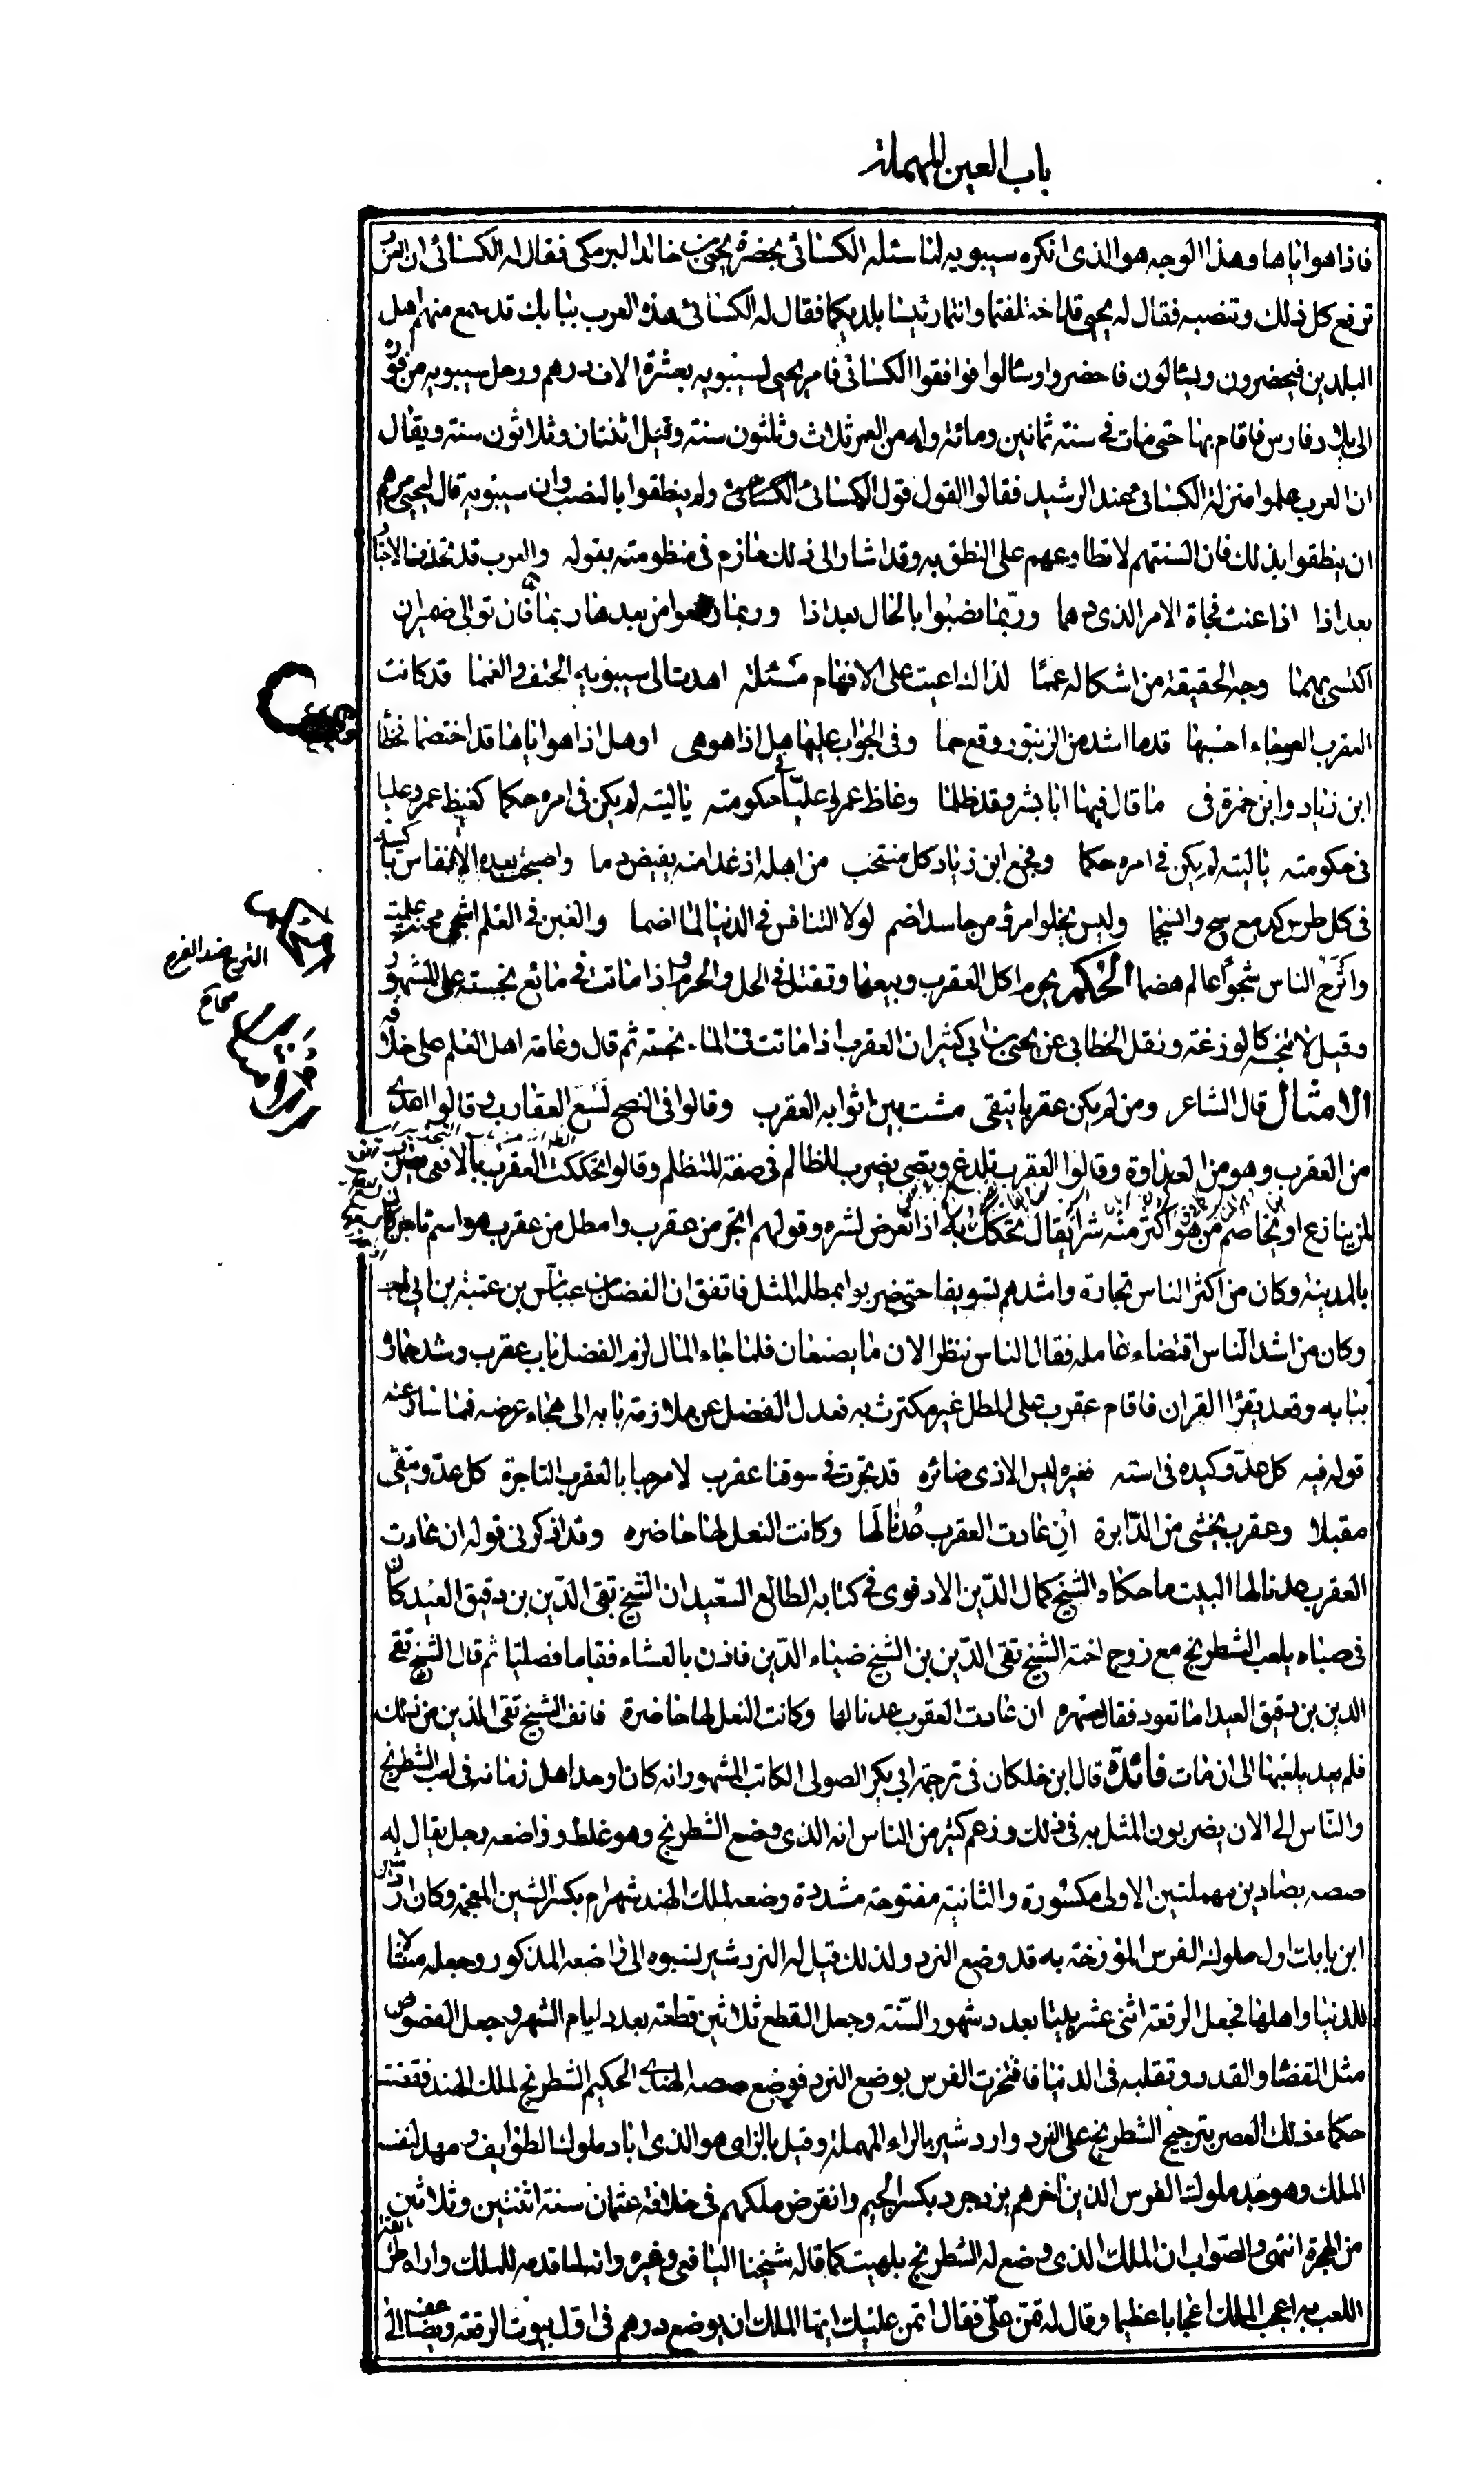 باب العين المهملة
فاذا هو اياها وهذا الوجه هو الذى انكره سيبويه لما سئله الكسائى بحضرة يحيى بن خالد البرمكى فقال له الكسائى ان العرب
ترفع كل ذلك وتنصبه فقال له يحيى قد اختلفتما وانتما رئيسا بلديكما فقال له الكسائى هذه العرب ببابك قد سمع منهم اهل
البلدين فيحضرون ويسئالون فاحضروا وسئالوا فوافقوا الكسائى فامر يحيى لسيبويه بعشرة الاف درهم ورحل سيبويه من فوره
الى بلاد فارس فاقام بها حتى مات فى سنة ثمانين ومائة وله من العمر ثلاث وثلثون سنة وقيل اثنتان وثلاثون سنة ويقال
ان العرب علموا منزلة الكسائى عند الرشيد فقالوا القول قول الكسائى ولم ينطقوا بالنصب وان سيبويه قال ليحيى مرهم
ان ينطقوا بذلك فان السنتهم لا تطاوعهم على النطق به وقد اشار الى ذلك حازم فى منظومته بقوله والعرب قد تحذف الاخبار
بعد اذا اذا عنت فجاة الامر الذى دهما وربما نصبوا بالحال بعد اذا وربما رفعوا من بعدها ربما فان توالى ضميران
اكتسى بهما وجه الحقيقة من اشكاله غمما لذاك اعيت على الافهام مسئلة اهدت الى سيبويه الحتف والغمما قد كانت
العقرب العوجاء احسبها قدما اشد من الزنبور وقع حما وفى الجواب عليها هل اذا هو هى او هل اذا هو اياها قد اختصما فخطا
ابن زياد وابن حمزة فى ما قال فيها ابا بشر وقد ظلما وغاظ عمرا على فى حكومته ياليته لم يكن فى امره حكما كغيظ عمرو عليا
فى حكومته ياليته لم يكن فى امره حكما وفجع ابن زياد كل منتخب من اهله اذ غدا منه يفيض دما واصبحت بعده الانفاس باكية
فى كل طرس كدمع سح وانسجما وليس يخلو امرؤ من حاسد اضم لولا التنافس فى الدنيا لما اضما والغبن فى العلم اشجى محنة علمت
واترح الناس شجوا عالم هضما الحكم يحرم اكل العقرب وبيعها وتقتل فى الحل والحرم واذا ماتت فى مائع نجسته على المشهور
وقيل لا تنجسه كالوزغة ونقل الخطابى عن يحيى بن ابى كثير ان العقرب اذا ماتت فى الماء نجسته ثم قال وعامة اهل العلم على خلافه
الامثال قال الشاعر ومن لم يكن عقربا يتقى مشت بين اثوابه العقرب وقالوا فى النصح لسع العقارب وقالوا اعدى
من العقرب وهو من العداوة وقالوا العقرب تلدغ وتصى يضرب للظالم فى صفة المتظلم وقالوا تحككت العقرب بالافعى يضرب
لمن ينازع او يخاصم من هو اكثر منه شرا يقال تحكك به اذا تعرض لشره وقولهم اتجر من عقرب وامطل من عقرب هو اسم تاجر كان
بالمدينة وكان من اكثر الناس تجارة واشدهم تسويفا حتى ضربوا بمطله المثل فاتفق ان الفضل بن عباس بن عتبة بن ابى لهب
وكان من اشد الناس اقتضاء عامله فقال الناس ننظر الان ما يصنعان فلما جاء المال لزم الفضل باب عقرب وشد حماره
ببابه وقعد يقرا القران فاقام عقرب على المطل غير مكترث به فعدل الفضل عن ملازمة بابه الى هجاء عرضه فمما سار عنه
قوله فيه كل عدو كيده فى استه فغيره ليس الاذى ضائره قد تجرت فى سوقنا عقرب لا مرحبا بالعقرب التاجرة كل عدو يتقى
مقبلا وعقرب يخشى من الدابرة ان عادت العقرب عدنا لها وكانت النعل لها حاضره وقد اذكرنى قوله ان عادت
العقرب عدنا لها البيت ما حكاه الشيخ كمال الدين الادفوى فى كتابه الطالع السعيد ان الشيخ تقى الدين بن دقيق العيد كان
فى صباه يلعب الشطرنج مع زوج اخته الشيخ تقى الدين بن الشيخ ضياء الدين فاذن بالعشاء فقاما فصليا ثم قال الشيخ تقى
الدين بن دقيق العيد اما تعود فقال صهره ان عادت العقرب عدنا لها وكانت النعل لها حاضرة فانف الشيخ تقى الدين من ذلك
فلم يعد يلعبها الى ان مات فائدة قال ابن خلكان فى ترجمة ابى بكر الصولى الكاتب المشهور انه كان اوحد اهل زمانه فى لعب الشطرنج
والناس الى الان يضربون المثل به فى ذلك وزعم كثير من الناس انه الذى وضع الشطرنج وهو غلط وواضعه رجل يقال له
صصه بصادين مهملتين الاولى مكسورة والثانية مفتوحة مشددة وضعه لملك الهند شهرام بكسر الشين المعجمة وكان اردشير
ابن بابك اول ملوك الفرس المؤرخة به قد وضع النرد ولذلك قيل له النردشير لنسبوه الى واضعه المذكور وجعله مثالا
للدنيا واهلها فجعل الرقعة اثنى عشر بيتا بعدد شهور السنة وجعل القطع ثلاثين قطعة بعدد ايام الشهر وجعل الفصوص
مثل القضا والقدر وتقلبه فى الدنيا فافتخرت الفرس بوضع النرد فوضع صصه الهندى الحكيم الشطرنج لملك الهند فقضت
حكماء ذلك العصر بترجيح الشطرنج على النرد واردشير بالراء المهملة وقيل بالزاى هو الذى اباد ملوك الطوايف ومهد لنفسه
الملك وهو جد ملوك الفرس الذين اخرهم يزدجرد بكسر الجيم وانقرض ملكهم فى خلافة عثمان سنة اثنتين وثلاثين
من الهجرة انتهى والصواب ان الملك الذى وضع له الشطرنج بلهيت كما قاله شيخنا اليافعى وغيره وانه لما قدمه للملك واراه طريقة
اللعب به اعجب الملك اعجابا عظيما وقال له تمن على فقال اتمن عليك ايها الملك ان يوضع درهم فى اول بيوت الرقعة ويضاعف الى
الترح ضد الفرح
صحاح